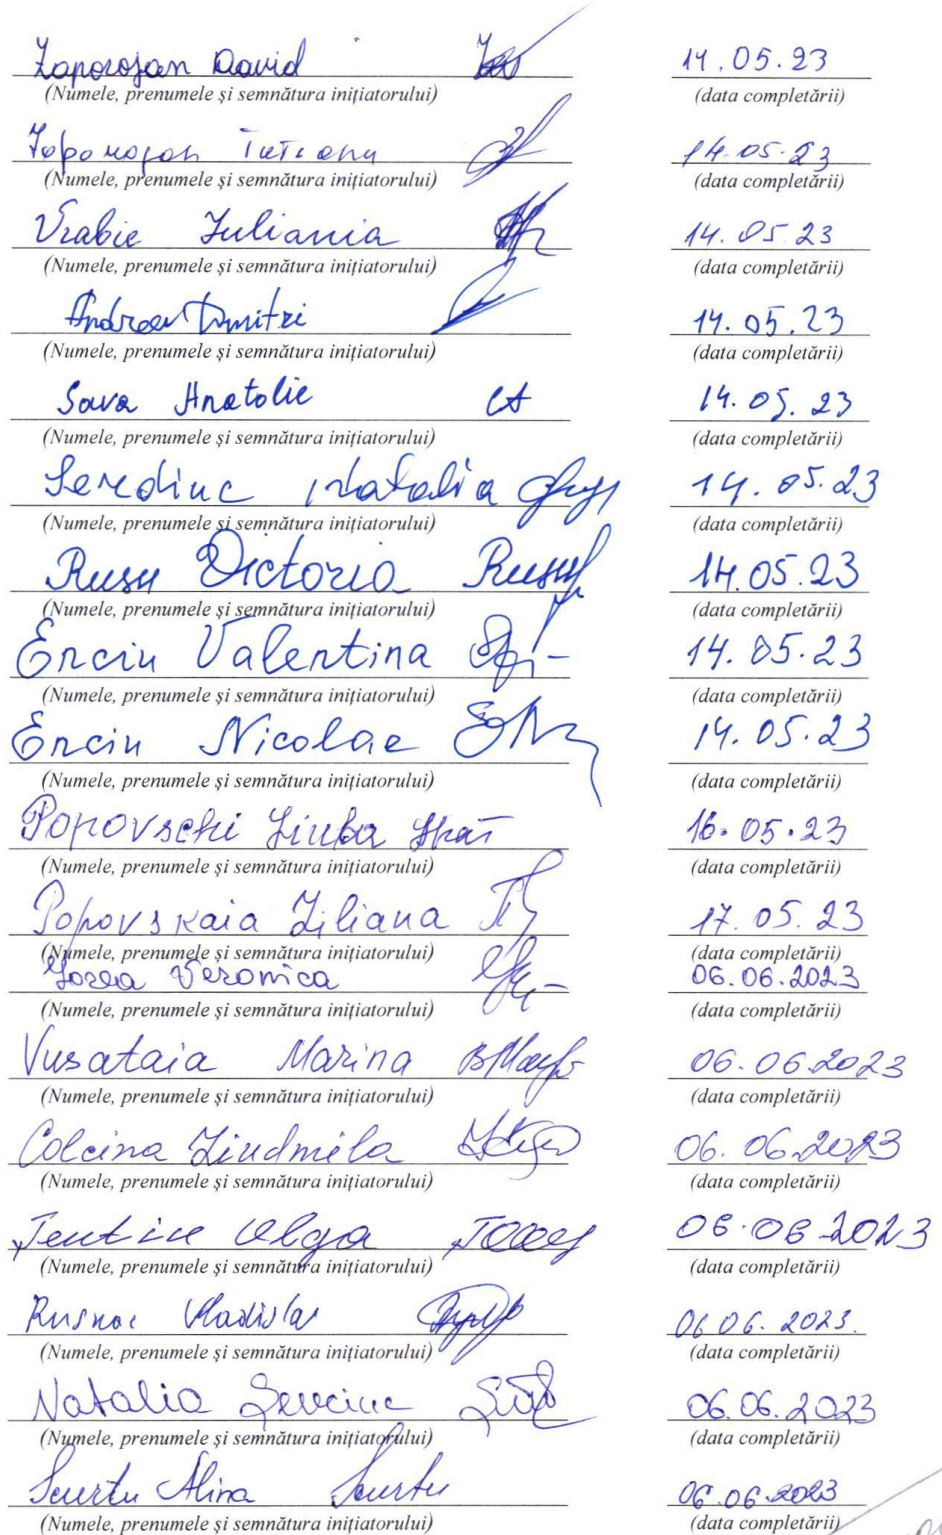 Zaporojan David 14.05.23
(Numele, prenumele și semnătura inițiatorului) (data completării)
Zaporojan 14.05.23
(Numele, prenumele și semnătura inițiatorului) (data completării)
Vrabie Iuliania 14.05.23
(Numele, prenumele și semnătura inițiatorului) (data completării)
Andreev Dmitri 14.05.23
(Numele, prenumele și semnătura inițiatorului) (data completării)
Sava Anatolie CA 14.05.23
(Numele, prenumele și semnătura inițiatorului) (data completării)
Serediuc Natalia 14.05.23
(Numele, prenumele și semnătura inițiatorului) (data completării)
Rusu Victoria Rusu 14.05.23
(Numele, prenumele și semnătura inițiatorului) (data completării)
Enciu Valentina 14.05.23
(Numele, prenumele și semnătura inițiatorului) (data completării)
Enciu Nicolae 14.05.23
(Numele, prenumele și semnătura inițiatorului) (data completării)
Popovschi Liuba 16.05.23
(Numele, prenumele și semnătura inițiatorului) (data completării)
Popovskaia Liliana 17.05.23
(Numele, prenumele și semnătura inițiatorului) (data completării)
Veronica 06.06.2023
(Numele, prenumele și semnătura inițiatorului) (data completării)
Vusataia Marina 06.06.2023
(Numele, prenumele și semnătura inițiatorului) (data completării)
Colcina Liudmila 06.06.2023
(Numele, prenumele și semnătura inițiatorului) (data completării)
Olga 06.06.2023
(Numele, prenumele și semnătura inițiatorului) (data completării)
Rusnac Vladislav 06.06.2023.
(Numele, prenumele și semnătura inițiatorului) (data completării)
Natalia Sevciuc 06.06.2023
(Numele, prenumele și semnătura inițiatorului) (data completării)
Scurtu Alina Scurtu 06.06.2023
(Numele, prenumele și semnătura inițiatorului) (data completării)